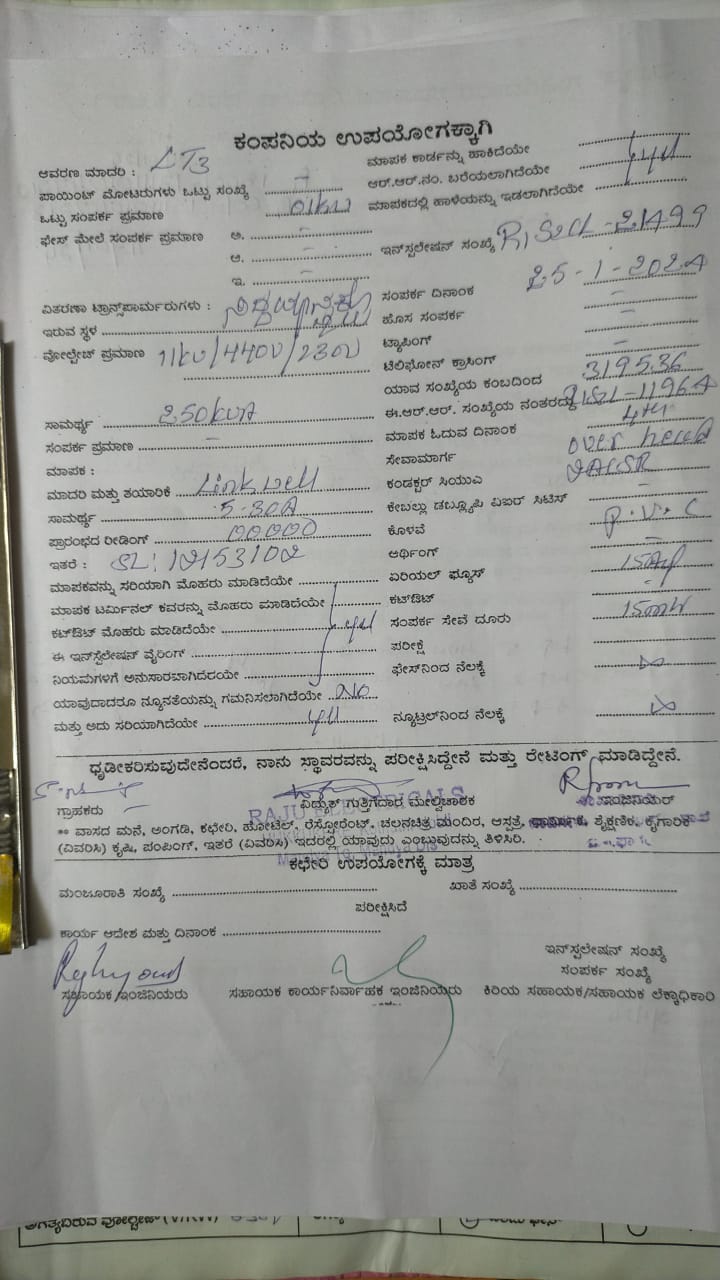 ಕಂಪನಿಯ ಉಪಯೋಗಕ್ಕಾಗಿ
ಆವರಣ ಮಾದರಿ : LT3
ಪಾಯಿಂಟ್ ಮೋಟರುಗಳು ಒಟ್ಟು ಸಂಖ್ಯೆ –
ಒಟ್ಟು ಸಂಪರ್ಕ ಪ್ರಮಾಣ 01KW
ಫೇಸ್ ಮೇಲೆ ಸಂಪರ್ಕ ಪ್ರಮಾಣ ಅ. –
ಆ. –
ಇ. –
ವಿತರಣಾ ಟ್ರಾನ್ಸ್‌ಫಾರ್ಮರುಗಳು :
ಇರುವ ಸ್ಥಳ
ವೋಲ್ಟೇಜ್ ಪ್ರಮಾಣ 11KV/440V/230V
ಸಾಮರ್ಥ್ಯ 250KVA
ಸಂಪರ್ಕ ಪ್ರಮಾಣ –
ಮಾಪಕ :
ಮಾದರಿ ಮತ್ತು ತಯಾರಿಕೆ Linkwell
ಸಾಮರ್ಥ್ಯ 5-30A
ಪ್ರಾರಂಭದ ರೀಡಿಂಗ್ 00000
ಇತರೆ : SL: 12153102
ಮಾಪಕವನ್ನು ಸರಿಯಾಗಿ ಮೊಹರು ಮಾಡಿದೆಯೇ
ಮಾಪಕ ಟರ್ಮಿನಲ್ ಕವರನ್ನು ಮೊಹರು ಮಾಡಿದೆಯೇ
ಕಟ್‌ಔಟ್ ಮೊಹರು ಮಾಡಿದೆಯೇ
ಈ ಇನ್‌ಸ್ಟಲೇಷನ್ ವೈರಿಂಗ್
ನಿಯಮಗಳಿಗೆ ಅನುಸಾರವಾಗಿದೆಯೇ
ಯಾವುದಾದರೂ ನ್ಯೂನತೆಯನ್ನು ಗಮನಿಸಲಾಗಿದೆಯೇ No
ಮತ್ತು ಅದು ಸರಿಯಾಗಿದೆಯೇ
ಮಾಪಕ ಕಾರ್ಡನ್ನು ಹಾಕಿದೆಯೇ
ಆರ್.ಆರ್.ನಂ. ಬರೆಯಲಾಗಿದೆಯೇ
ಮಾಪಕದಲ್ಲಿ ಹಾಳೆಯನ್ನು ಇಡಲಾಗಿದೆಯೇ
ಇನ್‌ಸ್ಟಲೇಷನ್ ಸಂಖ್ಯೆ
ಸಂಪರ್ಕ ದಿನಾಂಕ 25-1-2024
ಹೊಸ ಸಂಪರ್ಕ –
ಟ್ಯಾಪಿಂಗ್ –
ಟೆಲಿಫೋನ್ ಕ್ರಾಸಿಂಗ್ –
ಯಾವ ಸಂಖ್ಯೆಯ ಕಂಬದಿಂದ 319536
ಈ.ಆರ್.ಆರ್. ಸಂಖ್ಯೆಯ ನಂತರದ್ದು
ಮಾಪಕ ಓದುವ ದಿನಾಂಕ 4th
ಸೇವಾಮಾರ್ಗ over head
ಕಂಡಕ್ಟರ್ ಸಿಯುಎ
ಕೇಬಲ್ಲು ಡಬ್ಲ್ಯೂಪಿ ಏಐರ್ ಸಿಟಿಸ್ –
ಕೊಳವೆ P.V.C
ಅರ್ಥಿಂಗ್ –
ಏರಿಯಲ್ ಫ್ಯೂಸ್
ಕಟ್‌ಔಟ್ –
ಸಂಪರ್ಕ ಸೇವೆ ದೂರು
ಪರೀಕ್ಷೆ
ಫೇಸ್‌ನಿಂದ ನೆಲಕ್ಕೆ
ನ್ಯೂಟ್ರಲ್‌ನಿಂದ ನೆಲಕ್ಕೆ
ಧೃಡೀಕರಿಸುವುದೇನೆಂದರೆ, ನಾನು ಸ್ಥಾವರವನ್ನು ಪರೀಕ್ಷಿಸಿದ್ದೇನೆ ಮತ್ತು ರೇಟಿಂಗ್ ಮಾಡಿದ್ದೇನೆ.
ಗ್ರಾಹಕರು ವಿದ್ಯುತ್ ಗುತ್ತಿಗೆದಾರ ಮೇಲ್ವಿಚಾರಕ ಇಂಜಿನಿಯರ್
RAJU ELECTRICALS
** ವಾಸದ ಮನೆ, ಅಂಗಡಿ, ಕಛೇರಿ, ಹೋಟೆಲ್, ರೆಸ್ಟೋರೆಂಟ್, ಚಲನಚಿತ್ರ ಮಂದಿರ, ಆಸ್ಪತ್ರೆ, ಧಾರ್ಮಿಕ, ಶೈಕ್ಷಣಿಕ, ಕೈಗಾರಿಕೆ
(ವಿವರಿಸಿ) ಕೃಷಿ, ಪಂಪಿಂಗ್, ಇತರೆ (ವಿವರಿಸಿ) ಇದರಲ್ಲಿ ಯಾವುದು ಎಂಬುವುದನ್ನು ತಿಳಿಸಿರಿ.
ಕಛೇರಿ ಉಪಯೋಗಕ್ಕೆ ಮಾತ್ರ
ಮಂಜೂರಾತಿ ಸಂಖ್ಯೆ ಖಾತೆ ಸಂಖ್ಯೆ
ಪರೀಕ್ಷಿಸಿದೆ
ಕಾರ್ಯ ಆದೇಶ ಮತ್ತು ದಿನಾಂಕ
ಇನ್‌ಸ್ಟಲೇಷನ್ ಸಂಖ್ಯೆ
ಸಂಪರ್ಕ ಸಂಖ್ಯೆ
ಸಹಾಯಕ ಇಂಜಿನಿಯರು ಸಹಾಯಕ ಕಾರ್ಯನಿರ್ವಾಹಕ ಇಂಜಿನಿಯರು ಕಿರಿಯ ಸಹಾಯಕ/ಸಹಾಯಕ ಲೆಕ್ಕಾಧಿಕಾರಿ